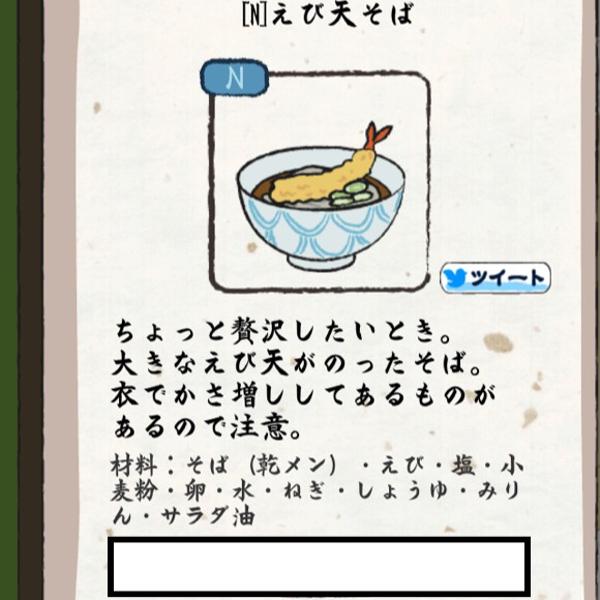 [N]えび天そば
N
ツイート
ちょっと贅沢したいとき。
大きなえび天がのったそば。
衣でかさ増ししてあるものが
あるので注意。
材料：そば（乾メン）・えび・塩・小
麦粉・卵・水・ねぎ・しょうゆ・みり
ん・サラダ油